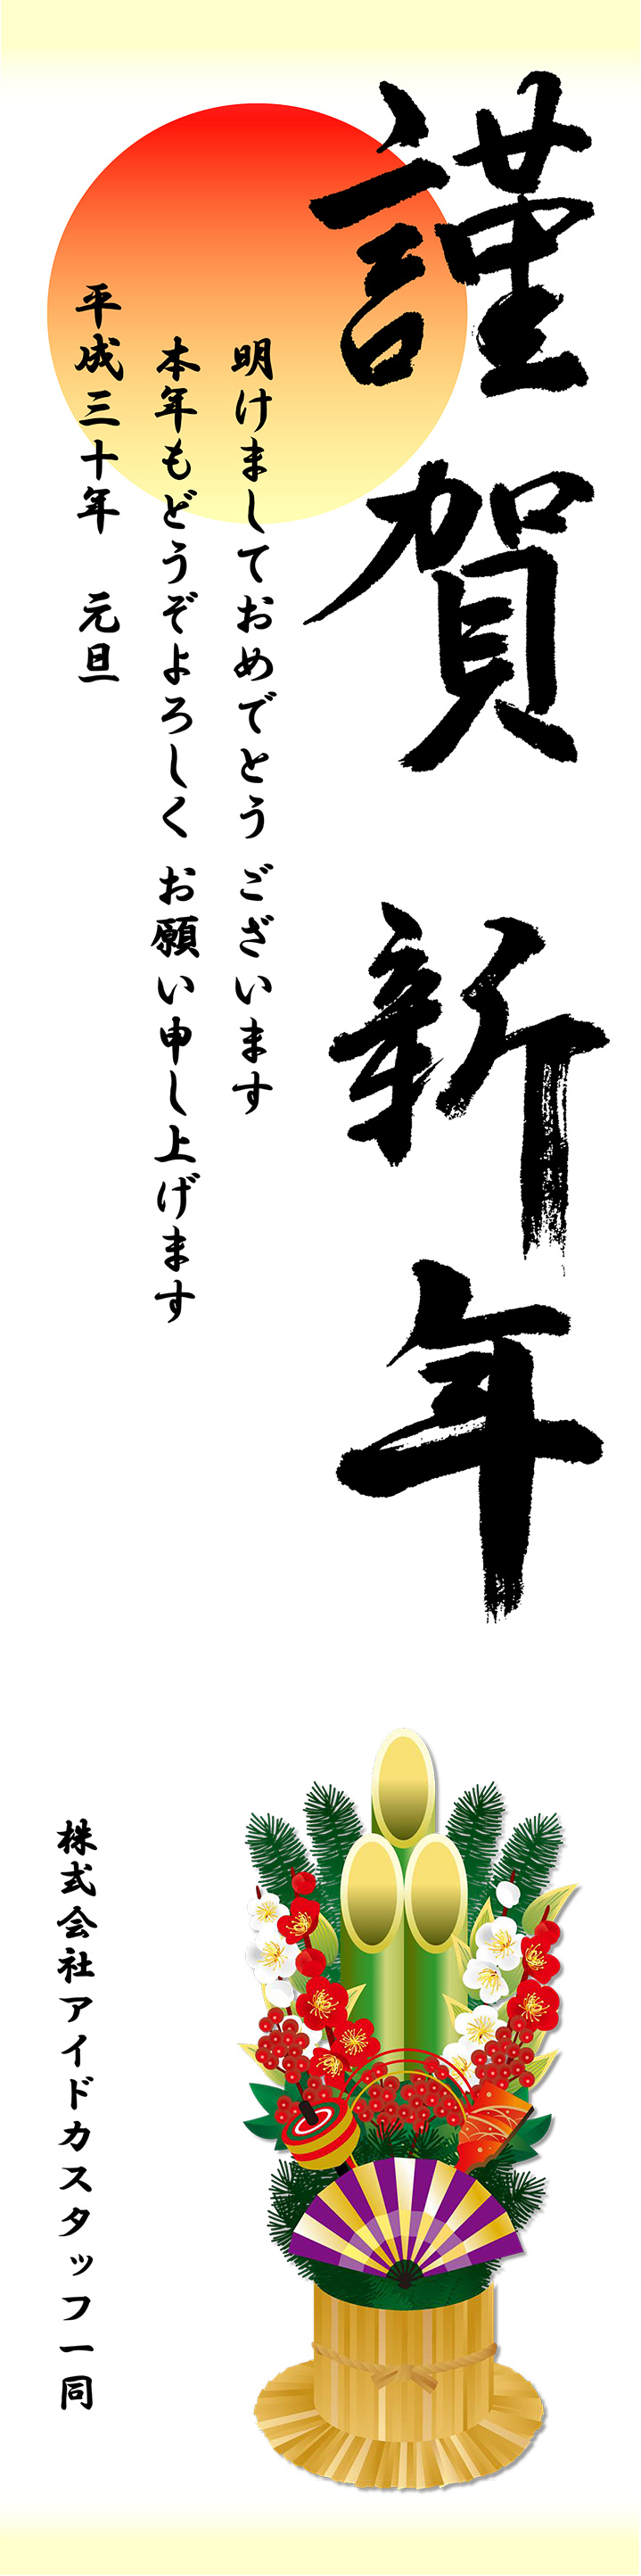 謹賀新年
明けましておめでとう ございます
本年もどうぞよろしく お願い申し上げます
平成三十年　元旦
株式会社アイドカスタッフ一同